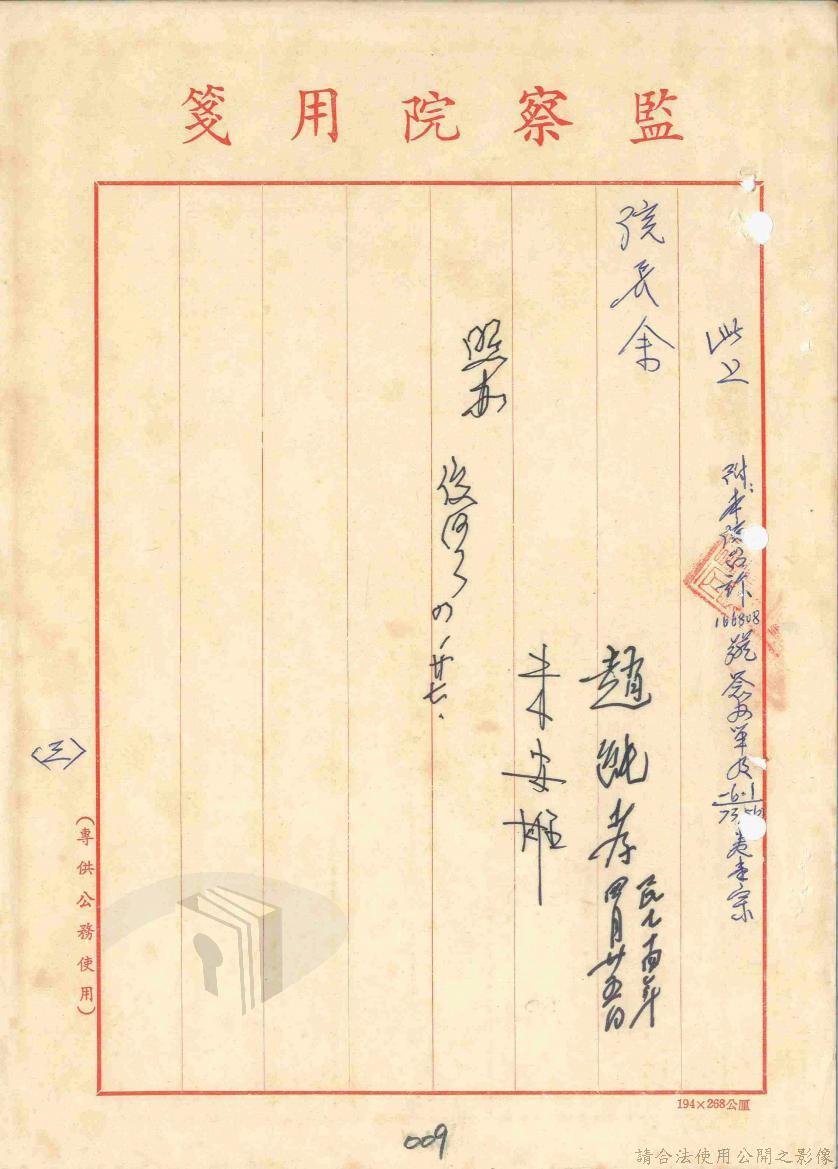 監察院用箋
此上
附:本院收訴166808號簽辦單及
卷壹宗
院長余
趙純孝
民七十四年
四月廿五日
朱安雄
照办
俊河
四、廿七、
〈三〉
(專供公務使用)
194×268公厘
009
請合法使用公開之影像